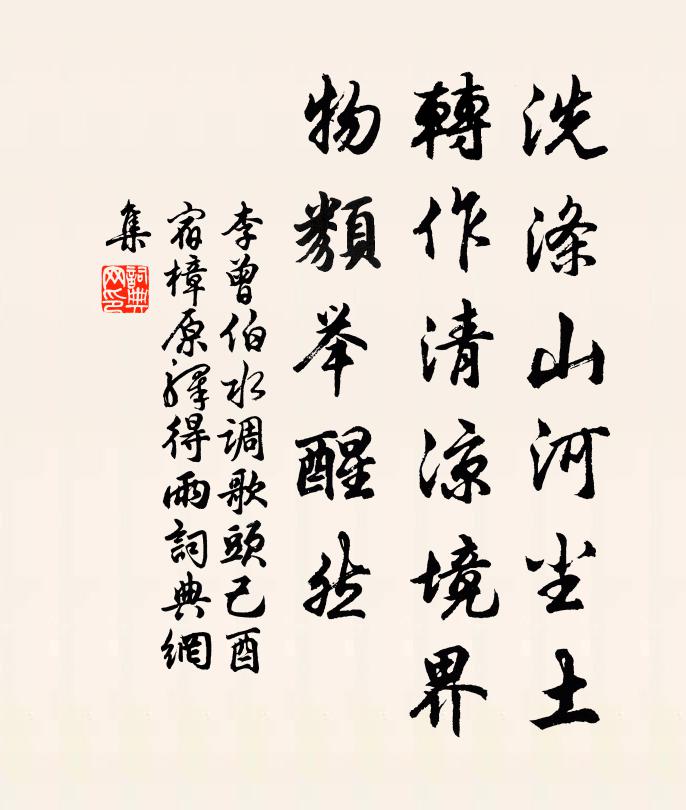 洗滌山河尘土
轉作清凉境界
物類举醒然
李曾伯水调歌頭己酉
宿樟原驛得雨詞典網
集
詞典網印